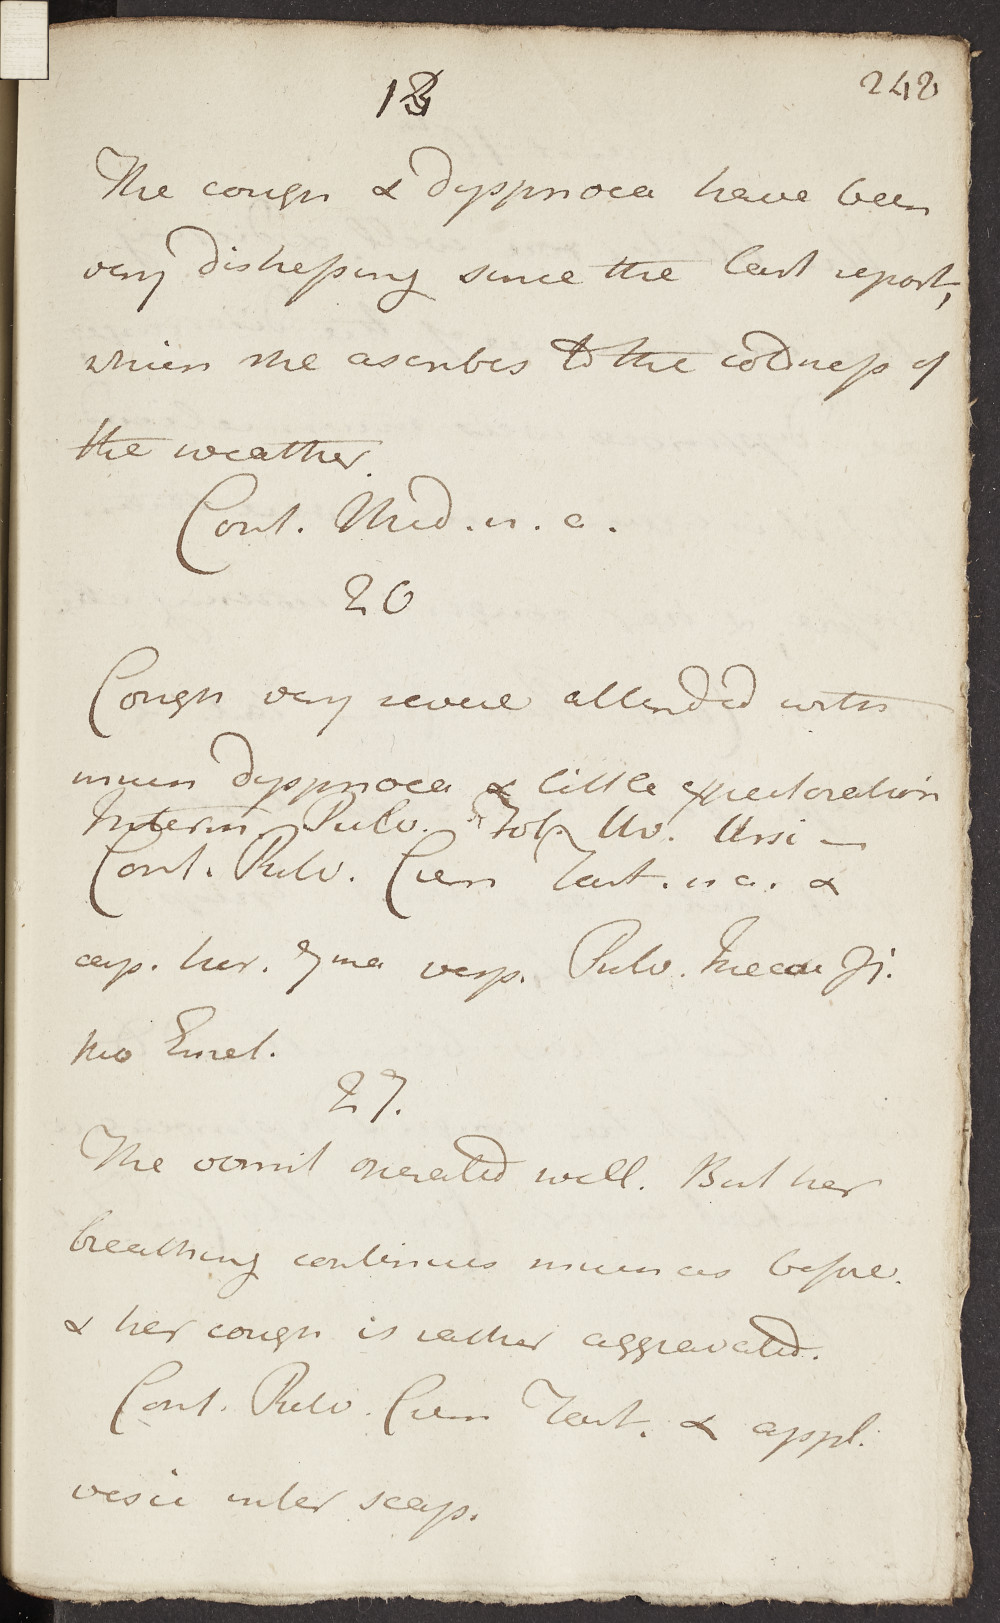 248
18
The cough & Dyspnoea have been
very distressing since the last report,
which she ascribes to the coldness of
the weather.
Cont. Med. u. a.
20
Cough very severe attended with
much Dyspnoea & little expectoration
Interm. Pulv. Fol. Uv. Ursi —
Cont. Pulv. Crem Tart. u a. &
cap. hor. 7ma vesp. Pulv. Ipecac ℈j.
pro Emet.
27.
The vomit operated well. But her
breathing continues much as before.
& her cough is rather aggravated.
Cont. Pulv. Crem Tart. & appl.
vesic inter scap.